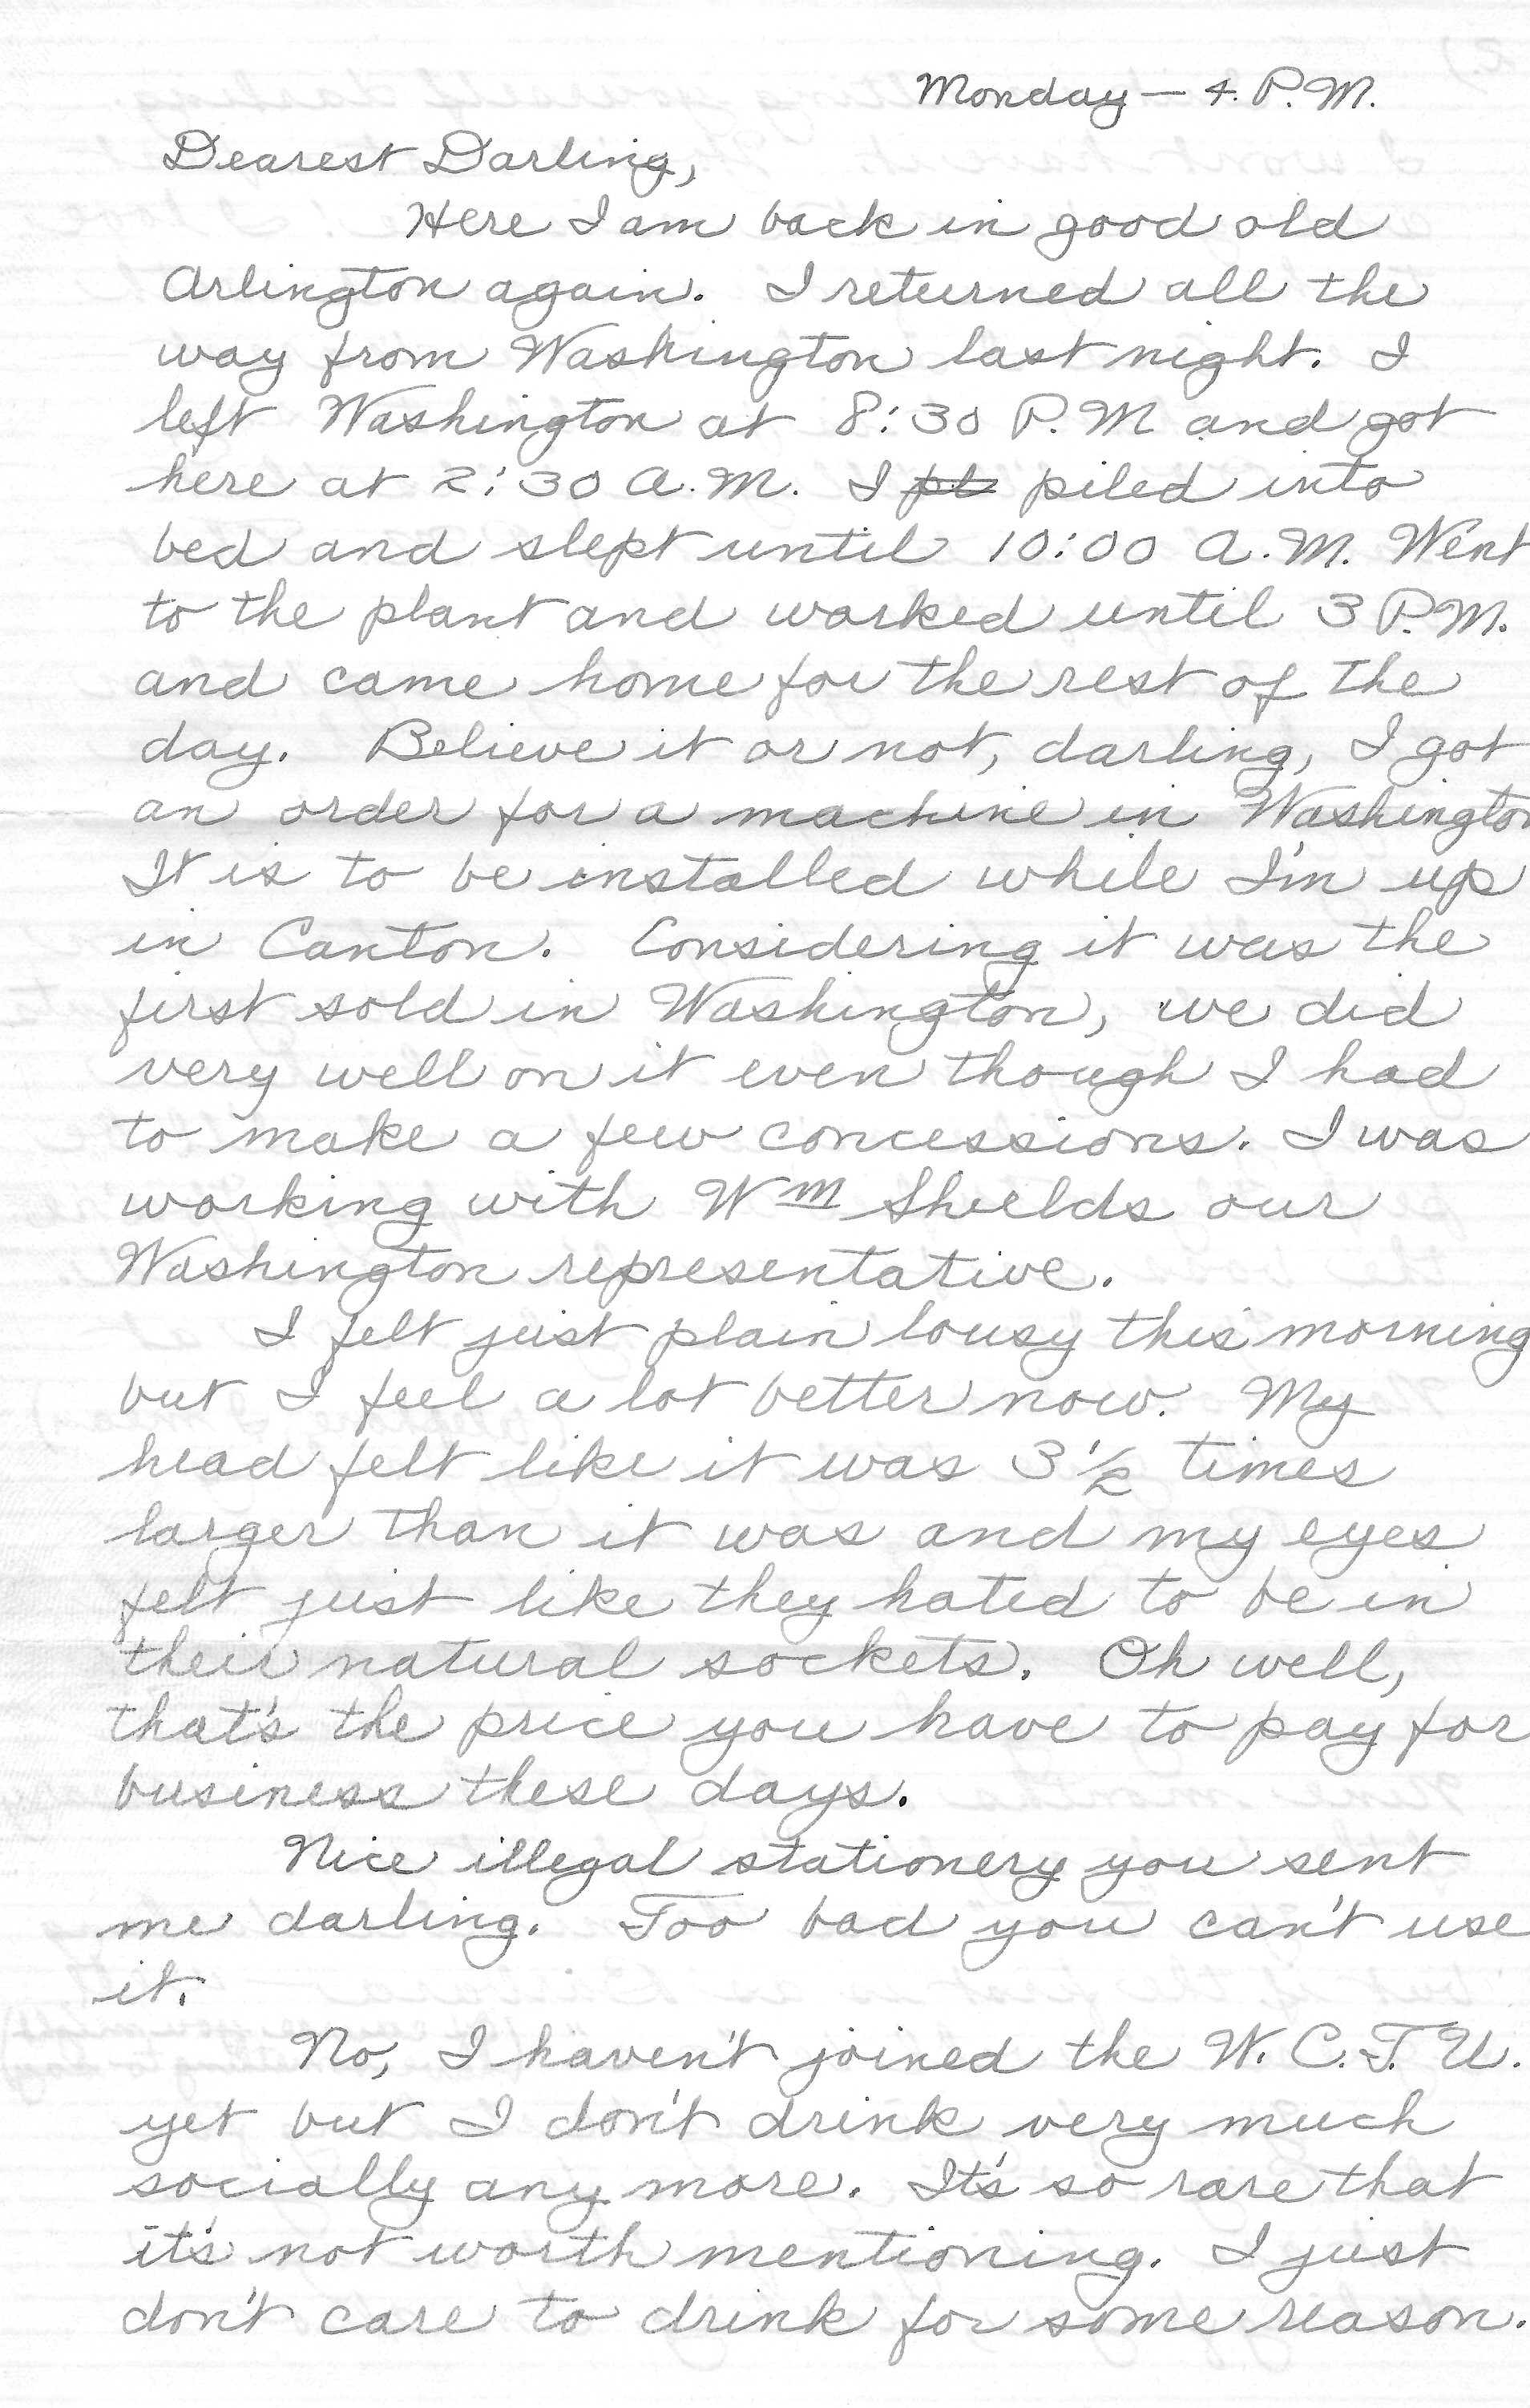 Monday — 4. P.M.
Dearest Darling,
Here I am back in good old
Arlington again. I returned all the
way from Washington last night. I
left Washington at 8:30 P.M and got
here at 2:30 A.M. I pl piled into
bed and slept until 10:00 A.M. Went
to the plant and worked until 3 P.M.
and came home for the rest of the
day. Believe it or not, darling, I got
an order for a machine in Washington
It is to be installed while I'm up
in Canton. Considering it was the
first sold in Washington, we did
very well on it even though I had
to make a few concessions. I was
working with Wm Shields our
Washington representative.
I felt just plain lousy this morning
but I feel a lot better now. My
head felt like it was 3 1/2 times
larger than it was and my eyes
felt just like they hated to be in
their natural sockets. Oh well,
that's the price you have to pay for
business these days.
Nice illegal stationery you sent
me darling. Too bad you can't use
it.
No, I haven't joined the W.C.T.U.
yet but I don't drink very much
socially any more. It's so rare that
it's not worth mentioning. I just
don't care to drink for some reason.